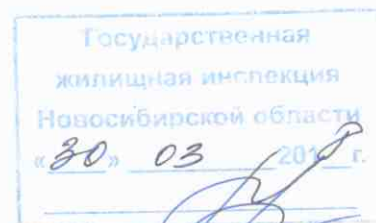 Государственная
жилищная инспекция
Новосибирской области
«30» 03 2018 г.